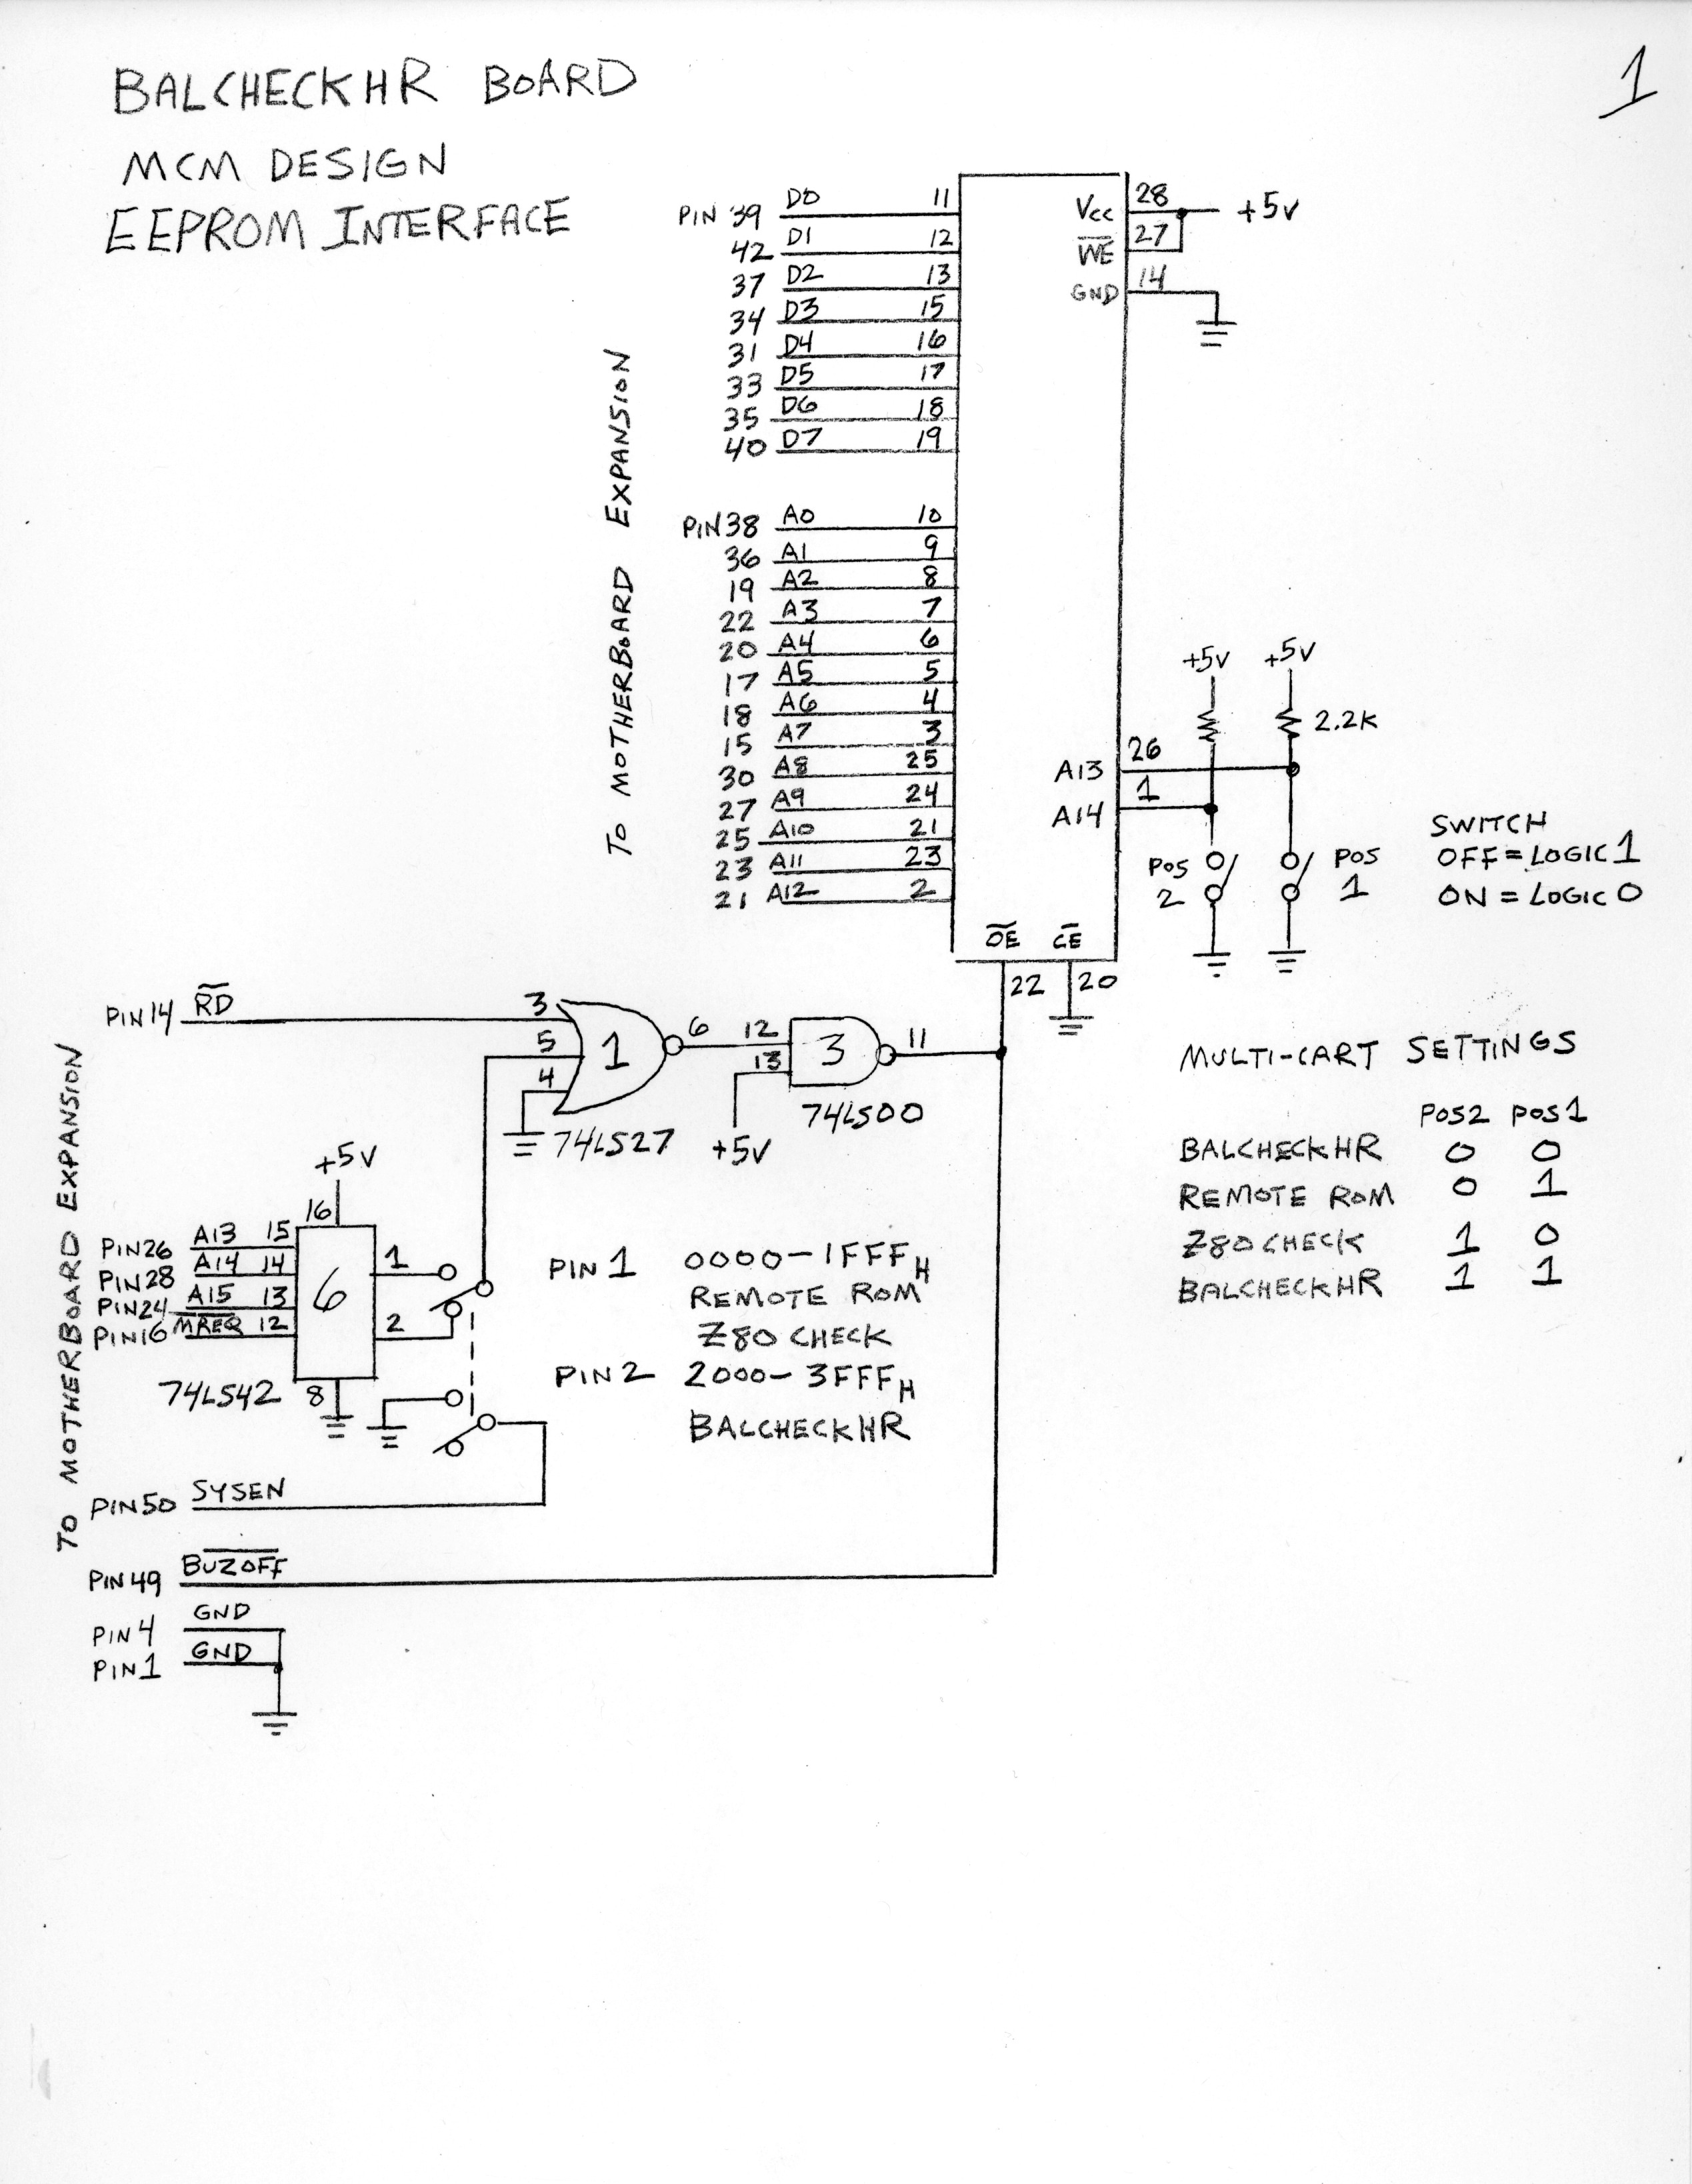 1
BALCHECKHR BOARD
MCM DESIGN
EEPROM INTERFACE
TO MOTHERBOARD EXPANSION
PIN 39 D0 11
42 D1 12
37 D2 13
34 D3 15
31 D4 16
33 D5 17
35 D6 18
40 D7 19
PIN38 A0 10
36 A1 9
19 A2 8
22 A3 7
20 A4 6
17 A5 5
18 A6 4
15 A7 3
30 A8 25
27 A9 24
25 A10 21
23 A11 23
21 A12 2
Vcc 28 +5V
W̅E̅ 27
GND 14
+5V +5V
2.2K
A13 26
A14 1
POS 2
POS 1
SWITCH
OFF = LOGIC 1
ON = LOGIC 0
O̅E̅ C̅E̅
22 20
PIN14 R̅D̅ 3
5
4
1
6
12
13
3
11
74LS27
+5V
74LS00
TO MOTHERBOARD EXPANSION
+5V
16
PIN26 A13 15
PIN28 A14 14
PIN24 A15 13
PIN16 M̅R̅E̅Q̅ 12
6
1
2
74LS42 8
PIN 1 0000-1FFFH
REMOTE ROM
Z80 CHECK
PIN 2 2000-3FFFH
BALCHECKHR
MULTI-CART SETTINGS
POS2 POS1
BALCHECKHR 0 0
REMOTE ROM 0 1
Z80 CHECK 1 0
BALCHECKHR 1 1
PIN50 SYSEN
PIN49 B̅U̅Z̅O̅F̅F̅
PIN4 GND
PIN1 GND